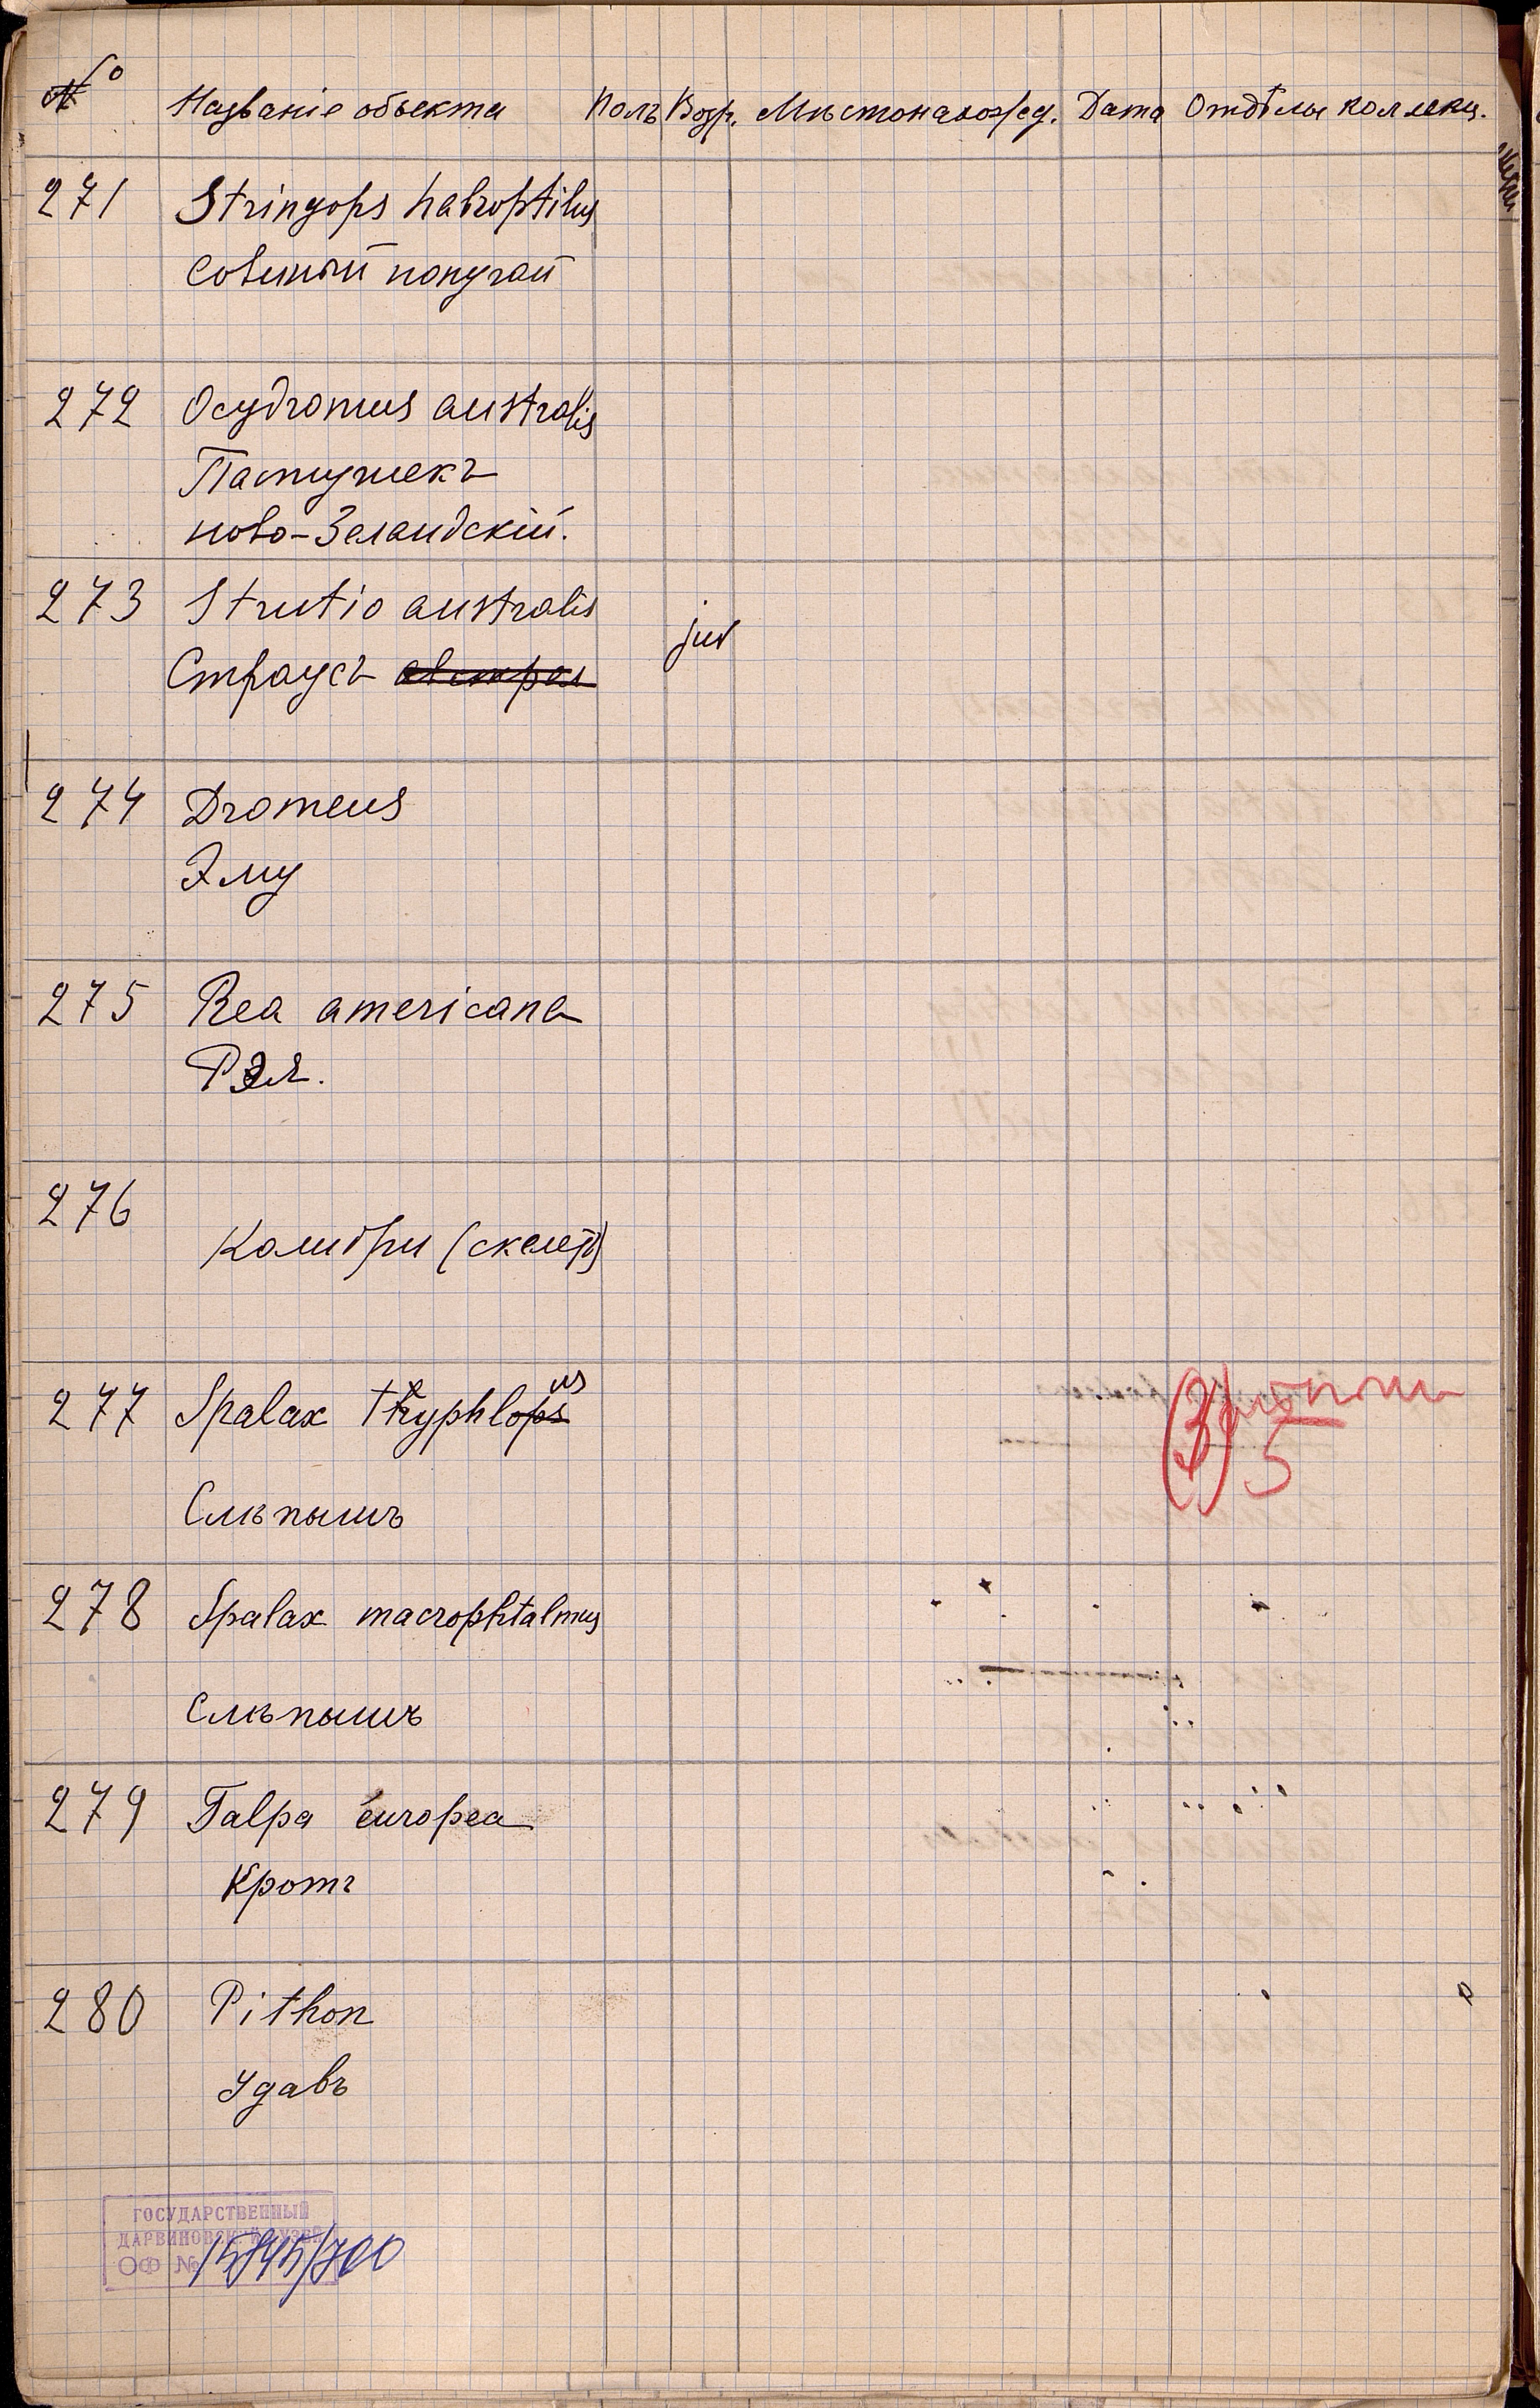 № Названіе объекта Полъ Возр. Мѣстонахожд. Дата Отдѣлы коллекц.
271 Stringops habroptilus
Совиный попугай
272 Ocydromus australis
Пастушекъ
ново-Зеландскій.
273 Strutio australis
juv
Страусъ австрал
274 Dromeus
Эму
275 Rea americana
Рэя.
276
Колибри (скелетъ)
277 Spalax thyphlops us
5
Слѣпышъ
278 Spalax macrophtalmus
Слѣпышъ
279 Talpa europea
Кротъ
280 Pithon
Удавъ
ГОСУДАРСТВЕННЫЙ
ДАРВИНОВСКИЙ МУЗЕЙ
ОФ №